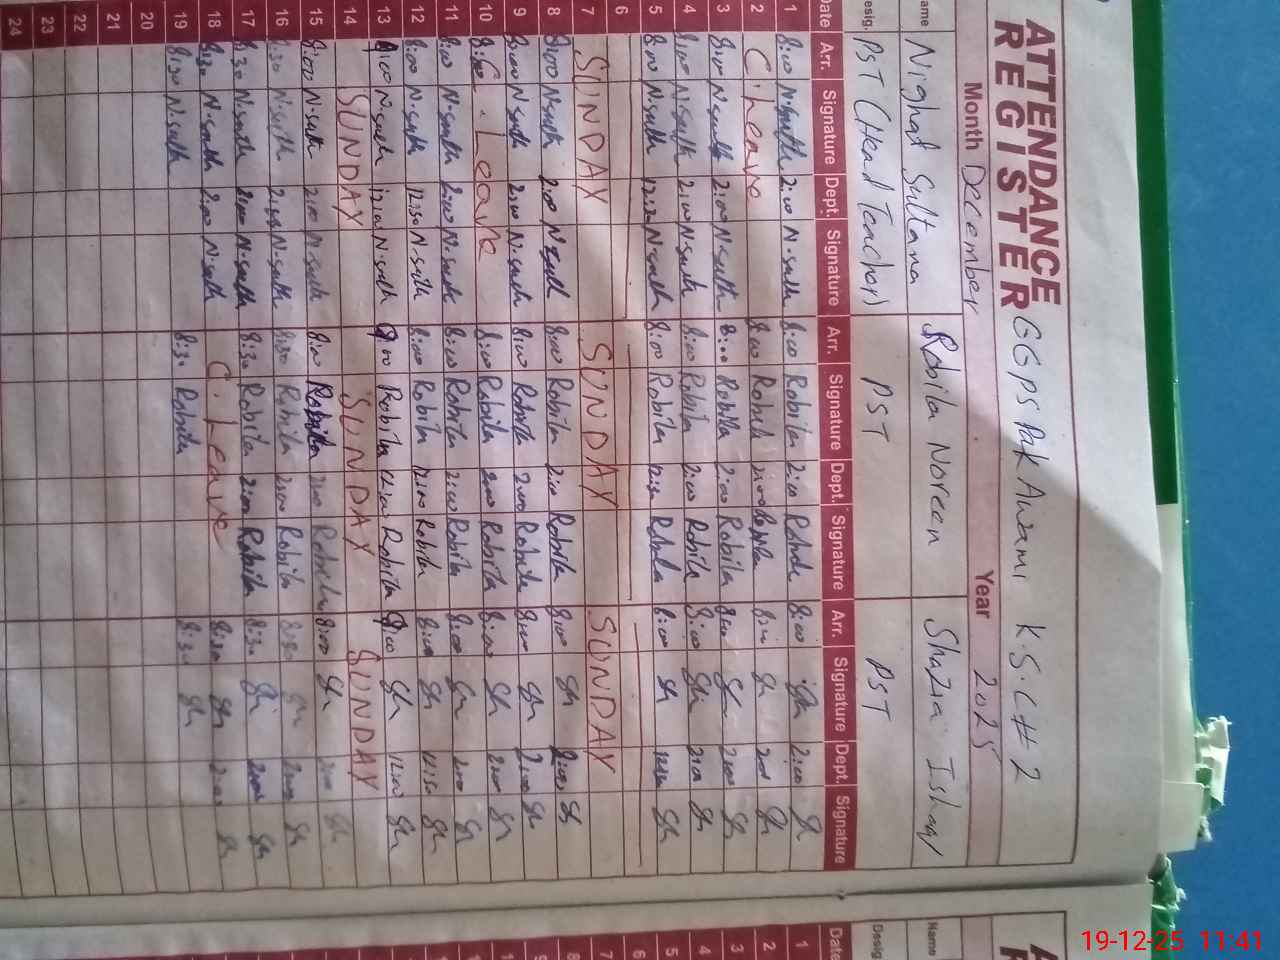 ATTENDANCE REGISTER
GGPS Pak Awami K.S.C # 2
Month December Year 2025
Name Nighat Sultana Robila Noreen Shazia Ishaq
Desig. PST (Head Teacher) PST PST
Date Arr. Signature Dept. Signature Arr. Signature Dept. Signature Arr. Signature Dept. Signature
1 8:00 N.Sulth 2:00 N.Sulth 8:00 Robila 2:00 8:00 Sh 2:00 Sh
2 C. Leave 8:00 2:00 Robila Sh 200 Sh
3 8:00 N.Sulth 2:00 N.Sulth 8:00 Robila 2:00 Robila 8:00 Sh 2:00 Sh
4 8:00 N.Sulth 2:00 N.Sulth 8:00 Robila 2:00 Robila 8:00 Sh 2:00 Sh
5 8:00 N.Sulth 12:30 N.Sulth 8:00 Robila 8:00 Sh Sh
6
7 SUNDAY SUNDAY SUNDAY
8 8:00 N.Sulth 2:00 N.Sulth 8:00 Robila 2:00 Robila 8:00 Sh 2:00 Sh
9 8:00 N.Sulth 2:00 N.Sulth 8:00 Robila 2:00 Robila 8:00 Sh 2:00 Sh
10 C. Leave 8:00 Robila 2:00 Robila 8:00 Sh 2:00 Sh
11 8:00 N.Sulth 2:00 N.Sulth 8:00 Robila 2:00 Robila 8:00 Sh 2:00 Sh
12 8:00 N.Sulth 12:30 N.Sulth 8:00 Robila Robila 8:00 Sh 12:30 Sh
13 9:00 N.Sulth 12:00 N.Sulth 9:00 Robila 12:00 Robila 9:00 Sh 12:00 Sh
14 SUNDAY SUNDAY SUNDAY
15 8:00 N.Sulth 2:00 N.Sulth 8:00 Robila 2:00 8:00 Sh 2:00 Sh
16 8:30 N.Sulth 2:00 N.Sulth Robila 2:00 Robila 8:30 Sh 2:00 Sh
17 8:30 N.Sulth 2:00 N.Sulth 8:30 Robila 2:00 Robila 8:30 Sh 2:00 Sh
18 8:30 N.Sulth 2:00 N.Sulth C. Leave 8:30 Sh 2:00 Sh
19 8:30 N.Sulth 8:30 Robila 8:30 Sh
20
21
22
23
24
Name
Desig
Date
1
2
3
4
5
6
7
8
9
10
11
19-12-25 11:41